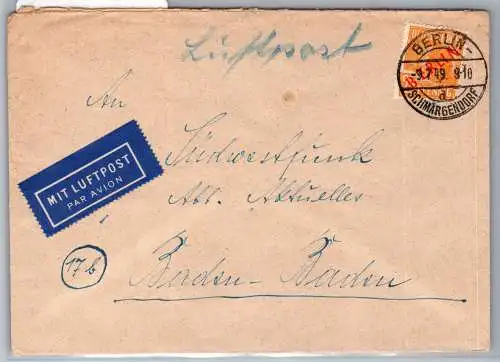 Luftpost
BERLIN-
BERLIN
-9.7.49. 8-10
a
SCHMARGENDORF
An
MIT LUFTPOST
PAR AVION
Südwestfunk
Abt. Aktuelles
17b
Baden-Baden